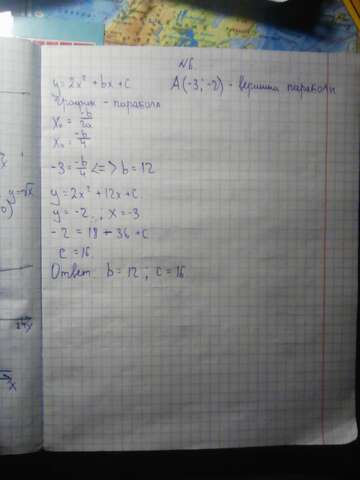 N6
y = 2x² + bx + c. A(-3; -2) - вершина параболы
График - парабола
x₀ = -b/2a
x₀ = -b/4
-3 = -b/4 <=> b = 12
y = 2x² + 12x + c.
y = -2, x = -3
-2 = 18 - 36 + c
c = 16.
Ответ: b = 12; c = 16
y=√x
x